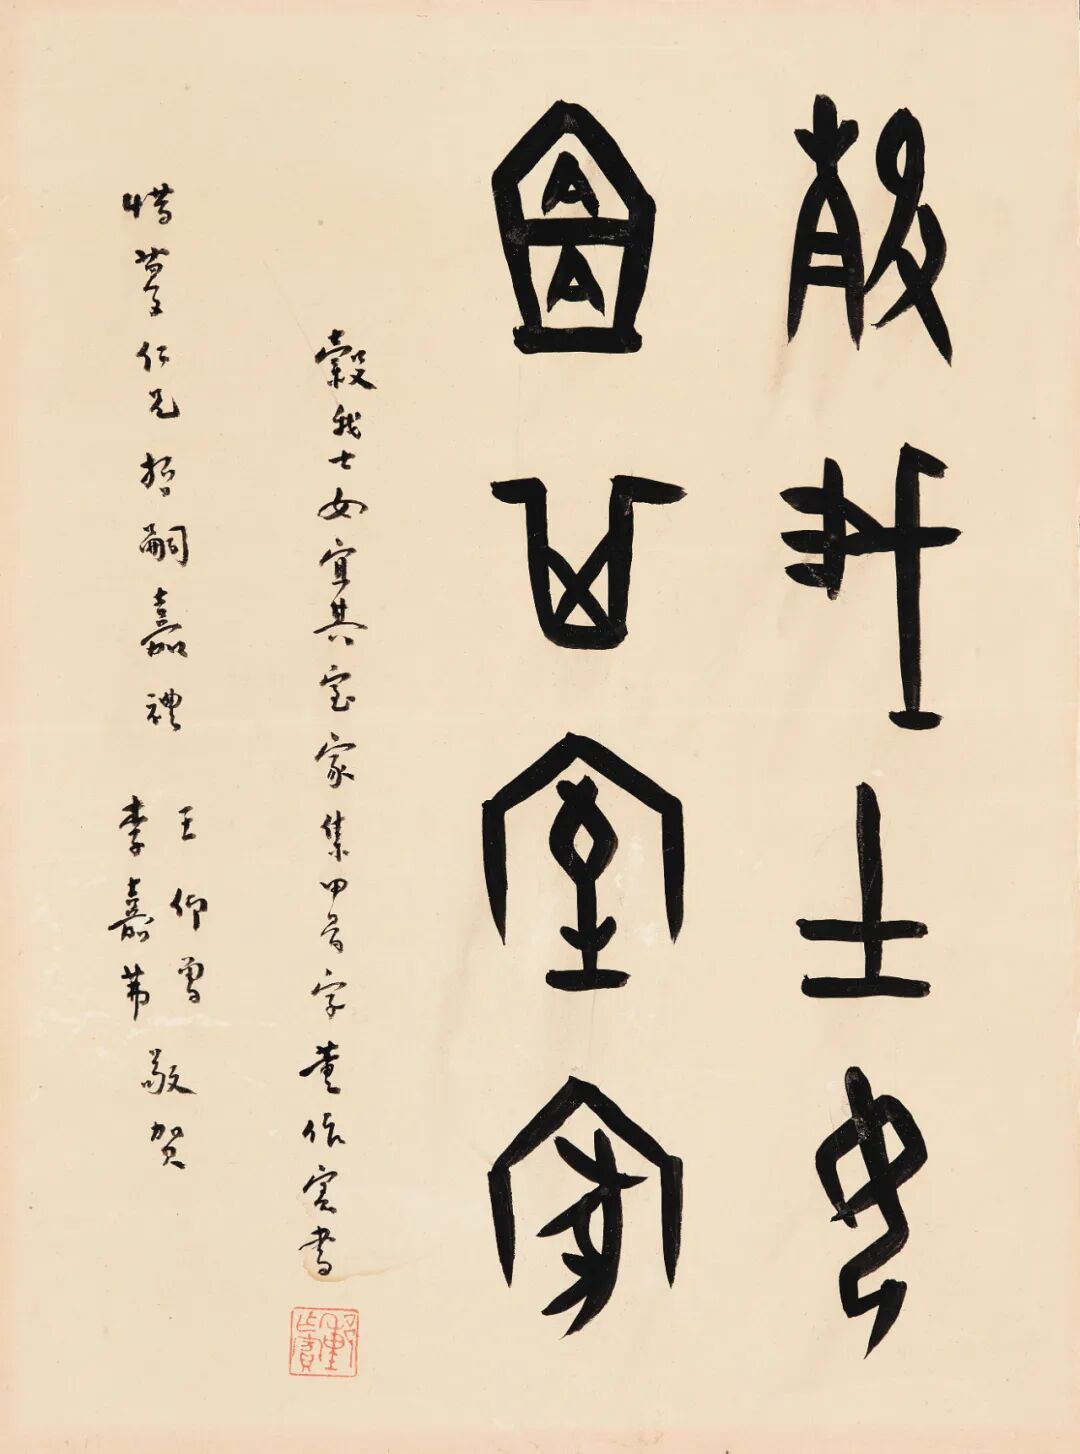 穀我士女
宜其室家
穀我士女宜其室家集甲骨字董作賓書
惜蕚仁兄哲嗣嘉禮
王仰曾
李嘉茀
敬賀